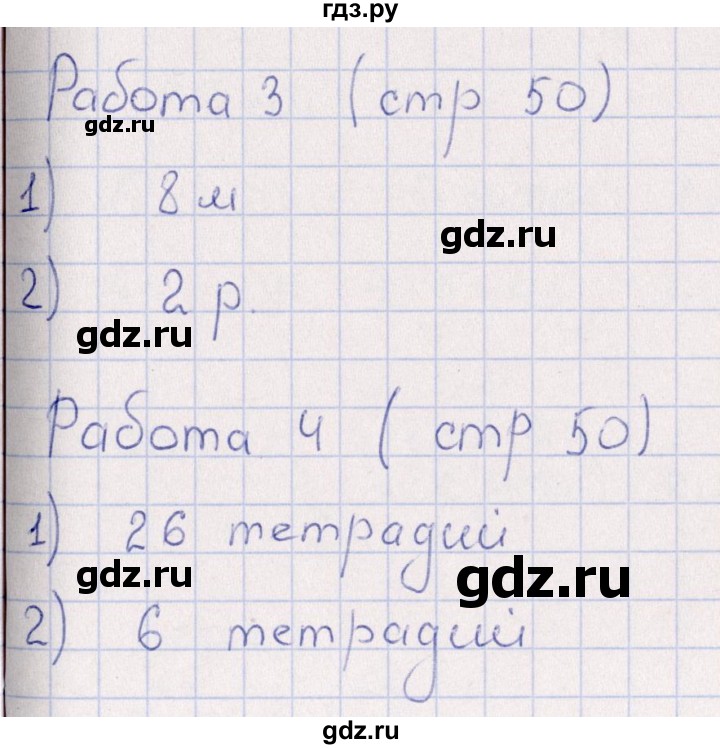 гдз.ру
Работа 3 (стр 50)
gdz.ru
1) 8 м
gdz.ru
2) 2 р.
gdz.ru
Работа 4 (стр 50)
1) 26 тетрадий
gdz.ru
gdz.ru
2) 6 тетрадий
gdz.ru